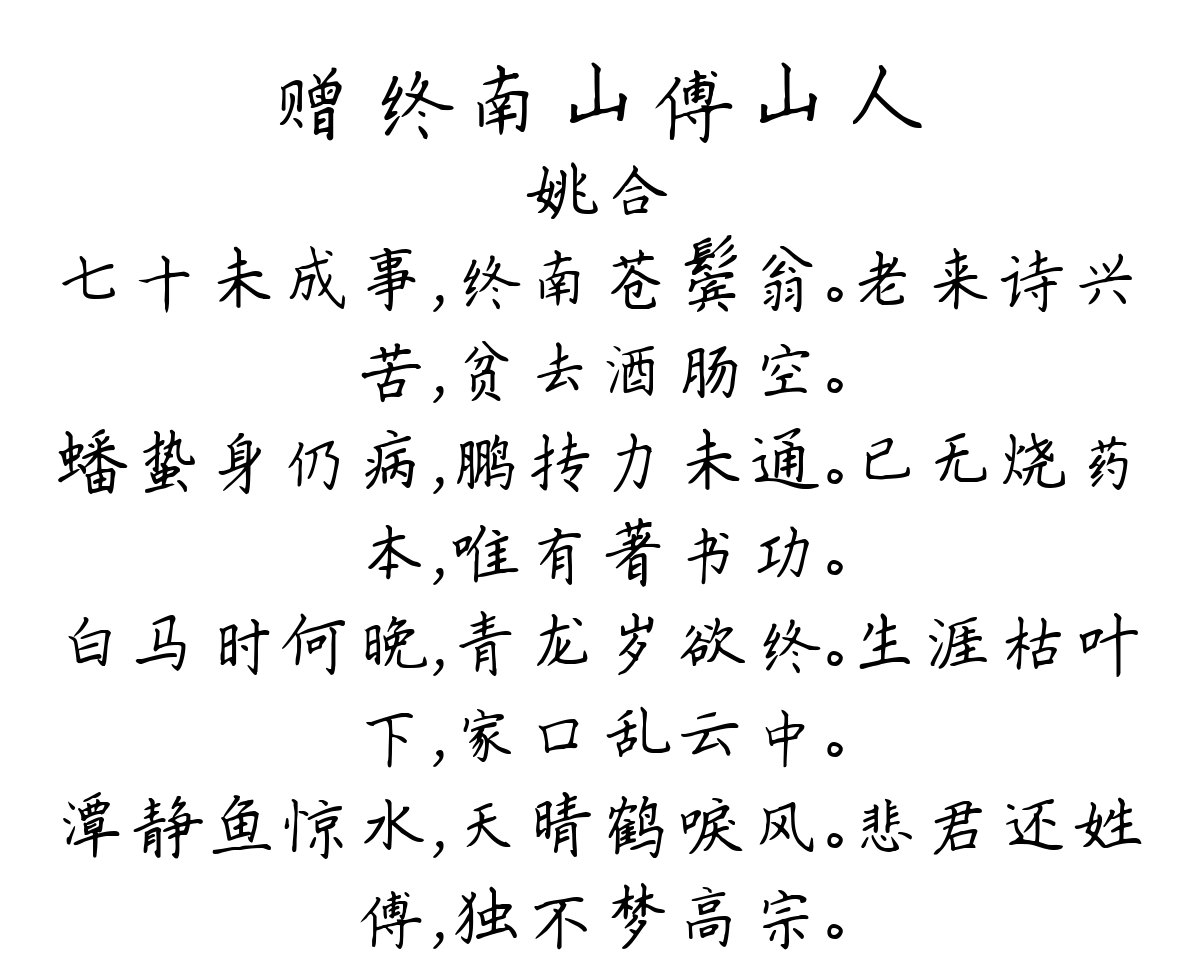 赠终南山傅山人
姚合
七十未成事,终南苍鬓翁。老来诗兴
苦,贫去酒肠空。
蟠蛰身仍病,鹏抟力未通。已无烧药
本,唯有著书功。
白马时何晚,青龙岁欲终。生涯枯叶
下,家口乱云中。
潭静鱼惊水,天晴鹤唳风。悲君还姓
傅,独不梦高宗。